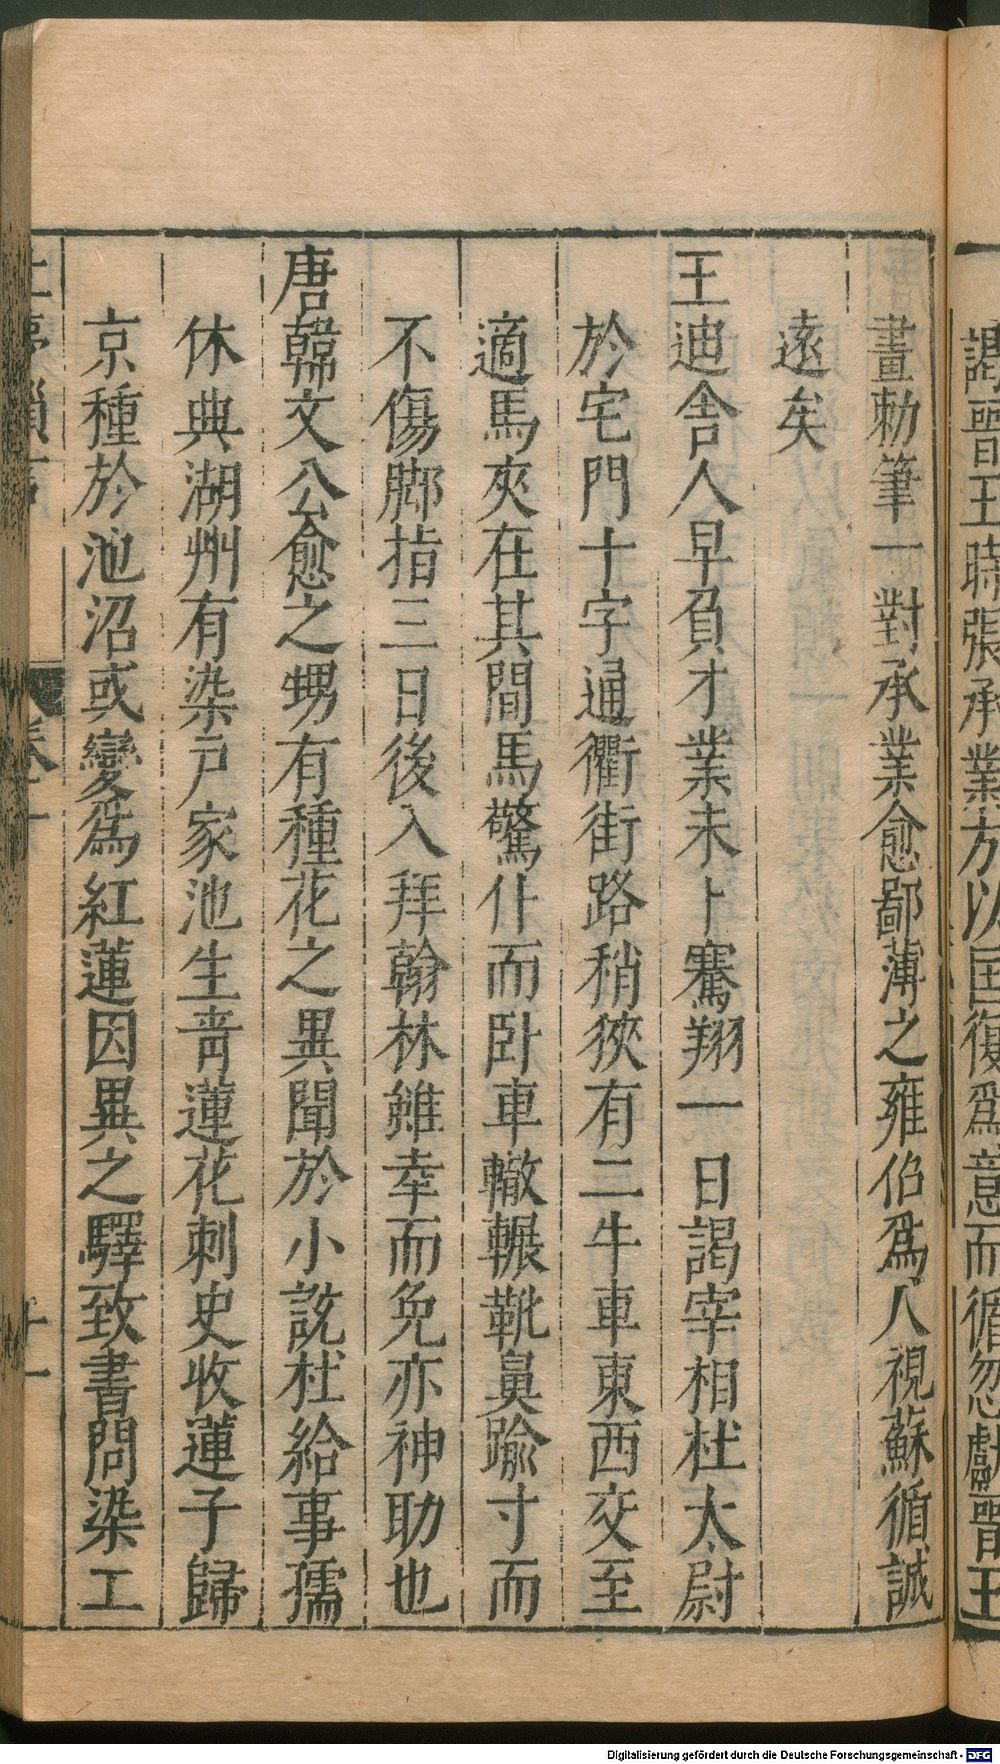 謁晉王時張承業方以匡復爲意而循忽獻晉王
畫勅筆一對承業愈鄙薄之雍伯爲人視蘇循誠
遠矣
王迪舍人早負才業未卜騫翔一日謁宰相杜太尉
於宅門十字通衢街路稍狹有二牛車東西交至
適馬夾在其間馬驚仆而卧車轍輾靴鼻踰寸而
不傷脚指三日後入拜翰林雖幸而免亦神助也
唐韓文公愈之甥有種花之異聞於小說杜給事孺
休典湖州有染戶家池生青蓮花刺史收蓮子歸
京種於池沼或變爲紅蓮因異之驛致書問染工
卷十
十一
Digitalisierung gefördert durch die Deutsche Forschungsgemeinschaft - DFG